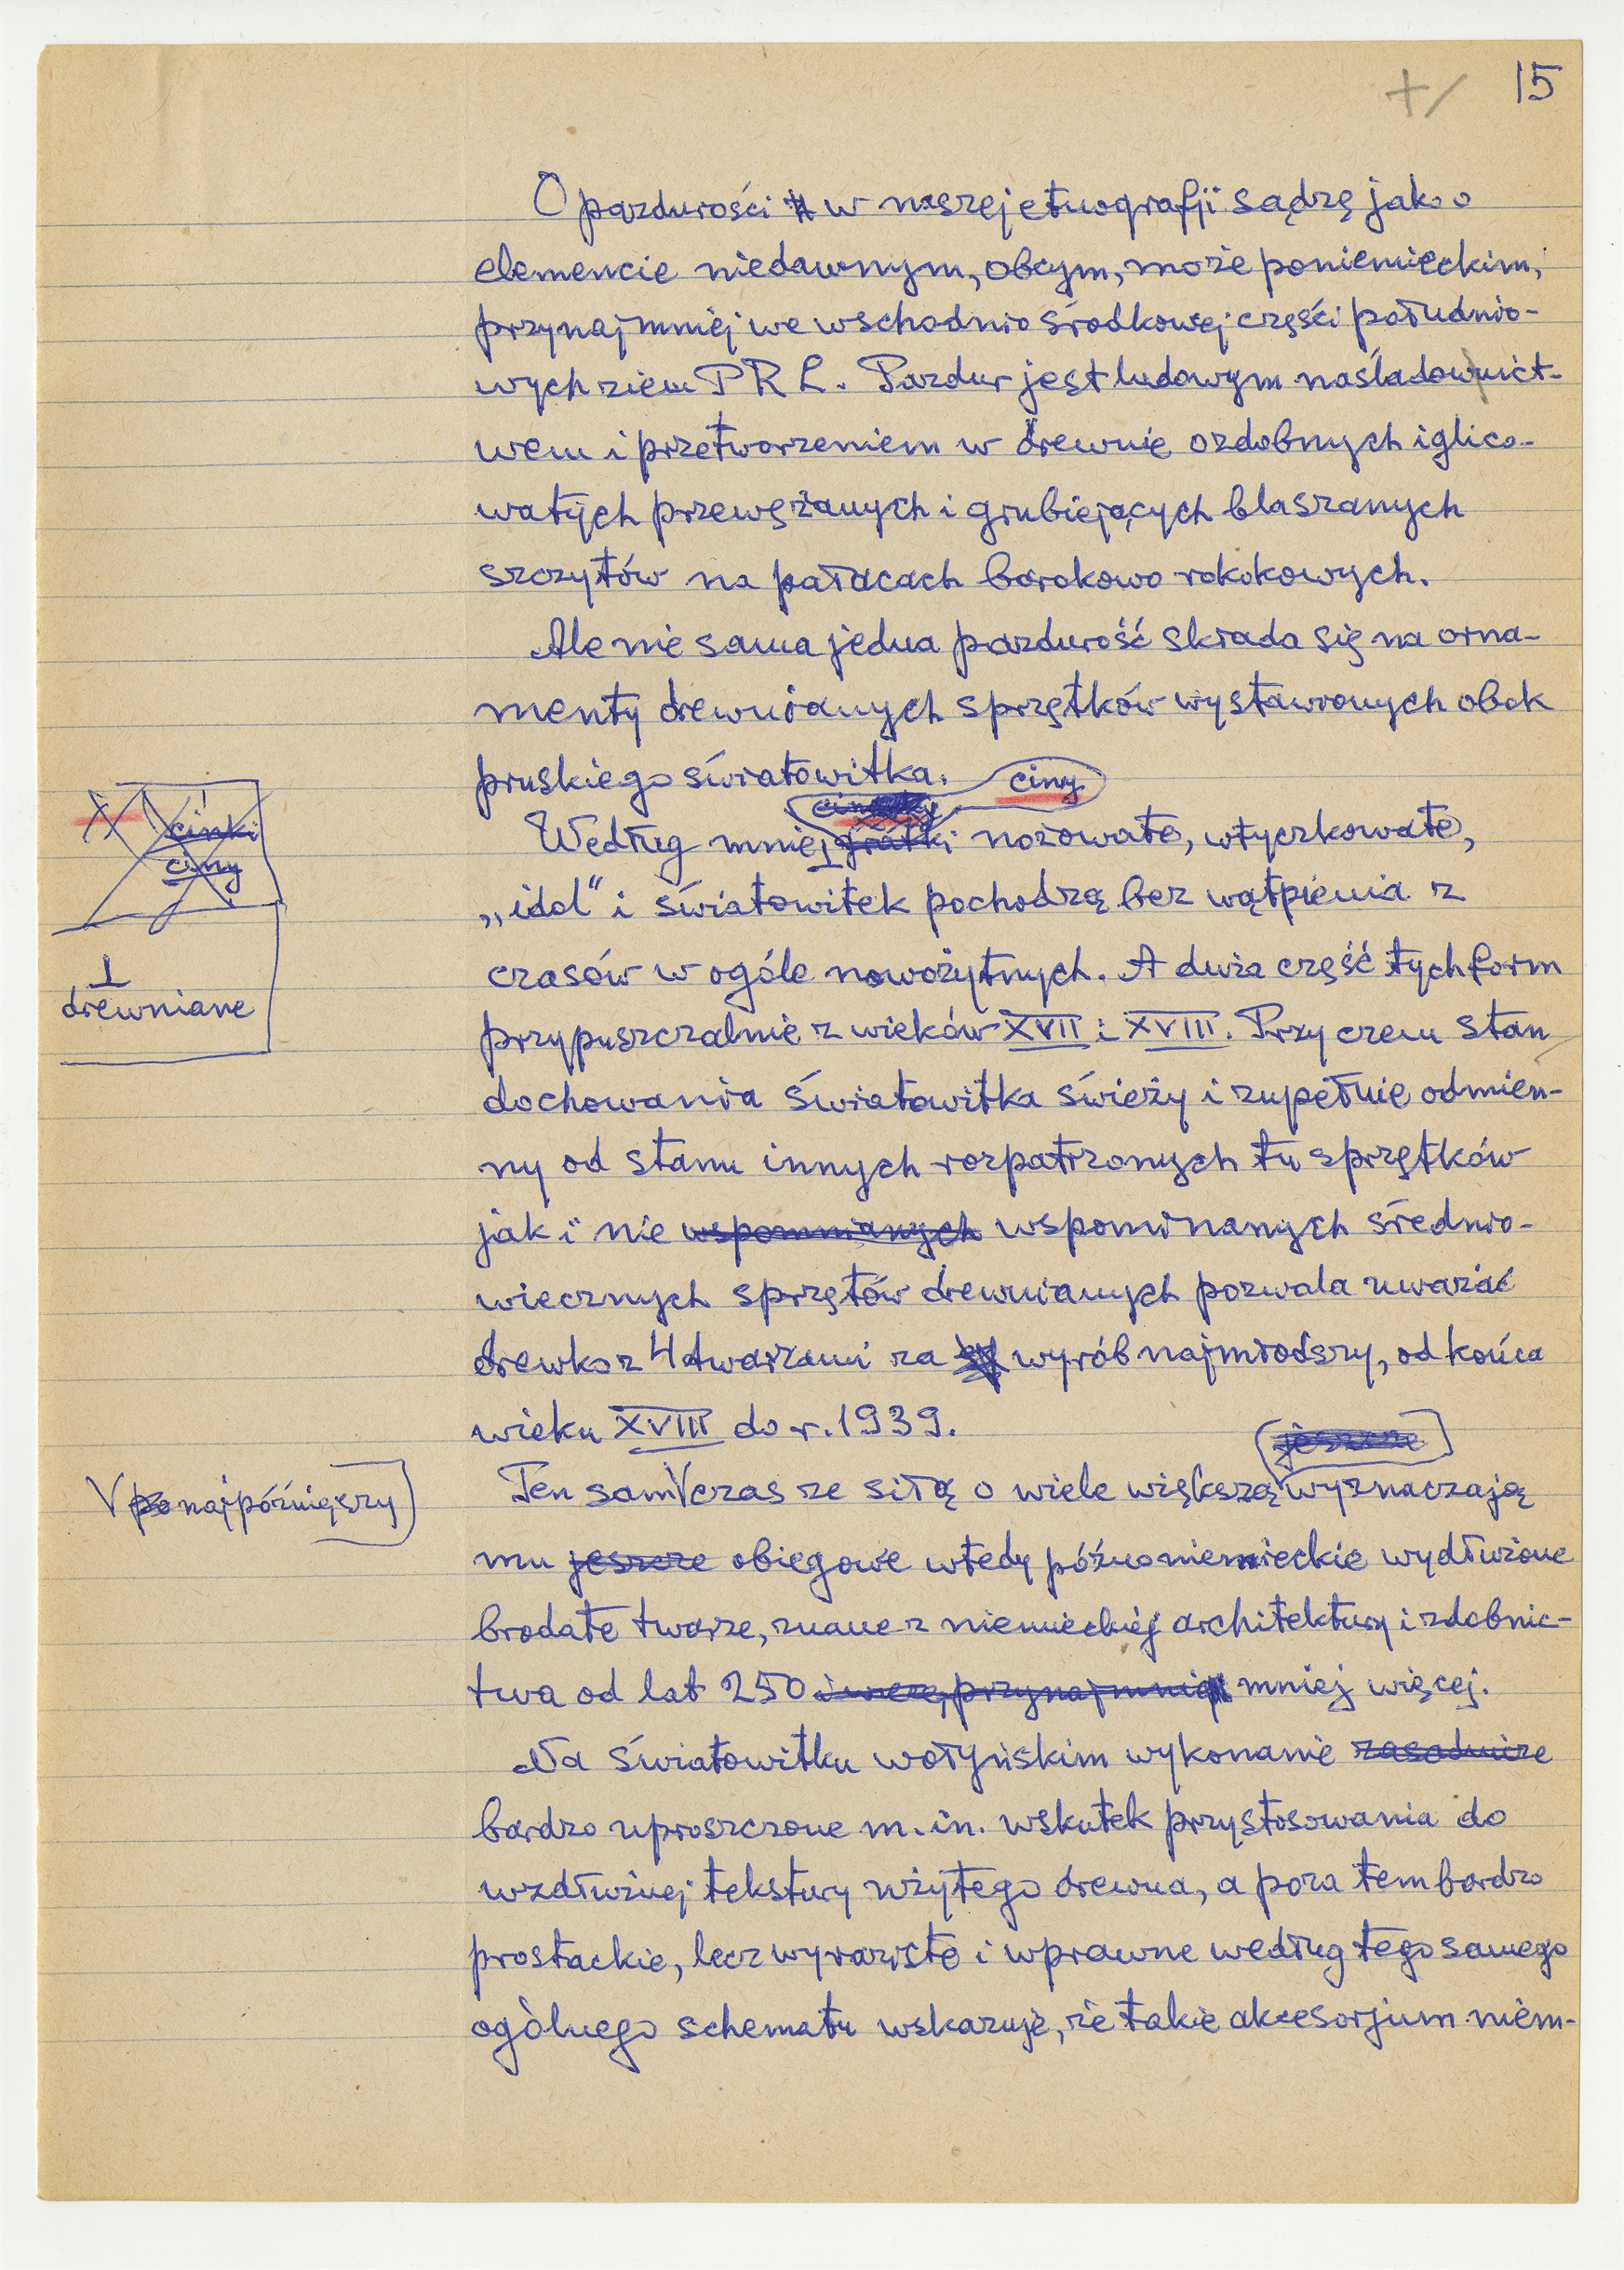 +/ 15
O pazdurości w naszej etnografji sądzę jako o
elemencie niedawnym, obcym, może poniemieckim,
przynajmniej we wschodnio środkowej części południo-
wych ziem PRL. Pazdur jest ludowym naśladownict-
wem i przetworzeniem w drewnie ozdobnych iglico-
watych przewężanych i grubiejących blaszanych
szczytów na pałacach barokowo rokokowych.
Ale nie sama jedna pazdurość składa się na orna-
menty drewnianych sprzętków wystawionych obok
pruskiego światowitka.
ciny
Według mnie ⊥ gratki nożowate, wtyczkowate,
cinki
ciny
„idol" i światowitek pochodzą bez wątpienia z
czasów w ogóle nowożytnych. A duża część tych form
⊥
drewniane
przypuszczalnie z wieków XVII i XVIII. Przy czem stan
dochowania światowitka świeży i zupełnie odmien-
ny od stanu innych rozpatrzonych tu sprzętków
jak i nie wspomnianych wspominanych średnio-
wiecznych sprzętów drewnianych pozwala uważać
drewko z 4 twarzami za wyrób najmłodszy, od końca
wieku XVIII do r. 1939.
jeszcze
Ten sam V czas ze siłą o wiele większą wyznaczają
V po najpóźniejszy
mu jeszcze obiegowe wtedy późnoniemieckie wydłużone
brodate twarze, znane z niemieckiej architektury i zdobnic-
twa od lat 250 i więcej, przynajmniej mniej więcej.
Na światowitku wołyńskim wykonanie zasadnicze
bardzo uproszczone m.in. wskutek przystosowania do
wzdłużnej tekstury użytego drewna, a poza tem bardzo
prostackie, lecz wyraziste i wprawne według tego samego
ogólnego schematu wskazuje, że takie akcesorjum niem-